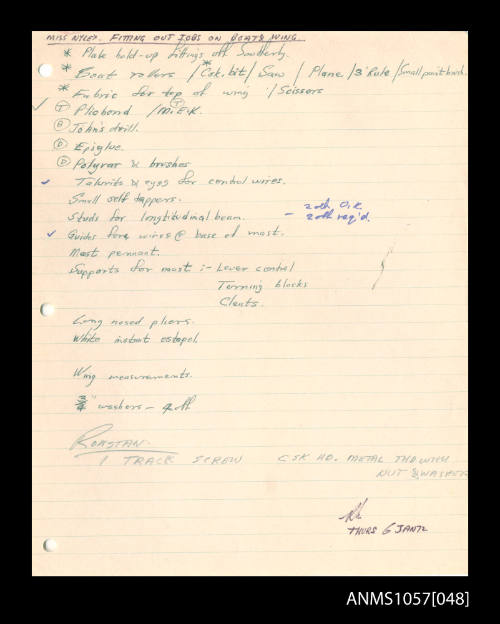 MISS NYLEX. FITTING OUT JOBS ON BOAT & WING
* Plate hold-up fittings off Smotherly.
* Boat rollers / * Csk. bit / Saw / Plane / 3' Rule / Small paint brush.
* Fabric for top of wing / Scissors
✓ (T) Pliobond / M.E.K. (T)
(B) John's drill.
(D) Epiglue.
(D) Polyvar & brushes
✓ Talurits & eyes for control wires.
Small self tappers.
Studs for longtitudinal beam. - 2 oth O.K
2 oth req'd.
✓ Guides for wires @ base of mast.
Mast pennant.
Supports for mast :- Lever control
Turning blocks
Cleats.
Long nosed pliers.
White instant estapol.
Wing measurements.
3/4" washers - 4 oth
RONSTAN.
1 TRACK SCREW CSK HD. METAL THD WITH
NUT & WASHER
THURS 6 JAN 72
ANMS1057[048]